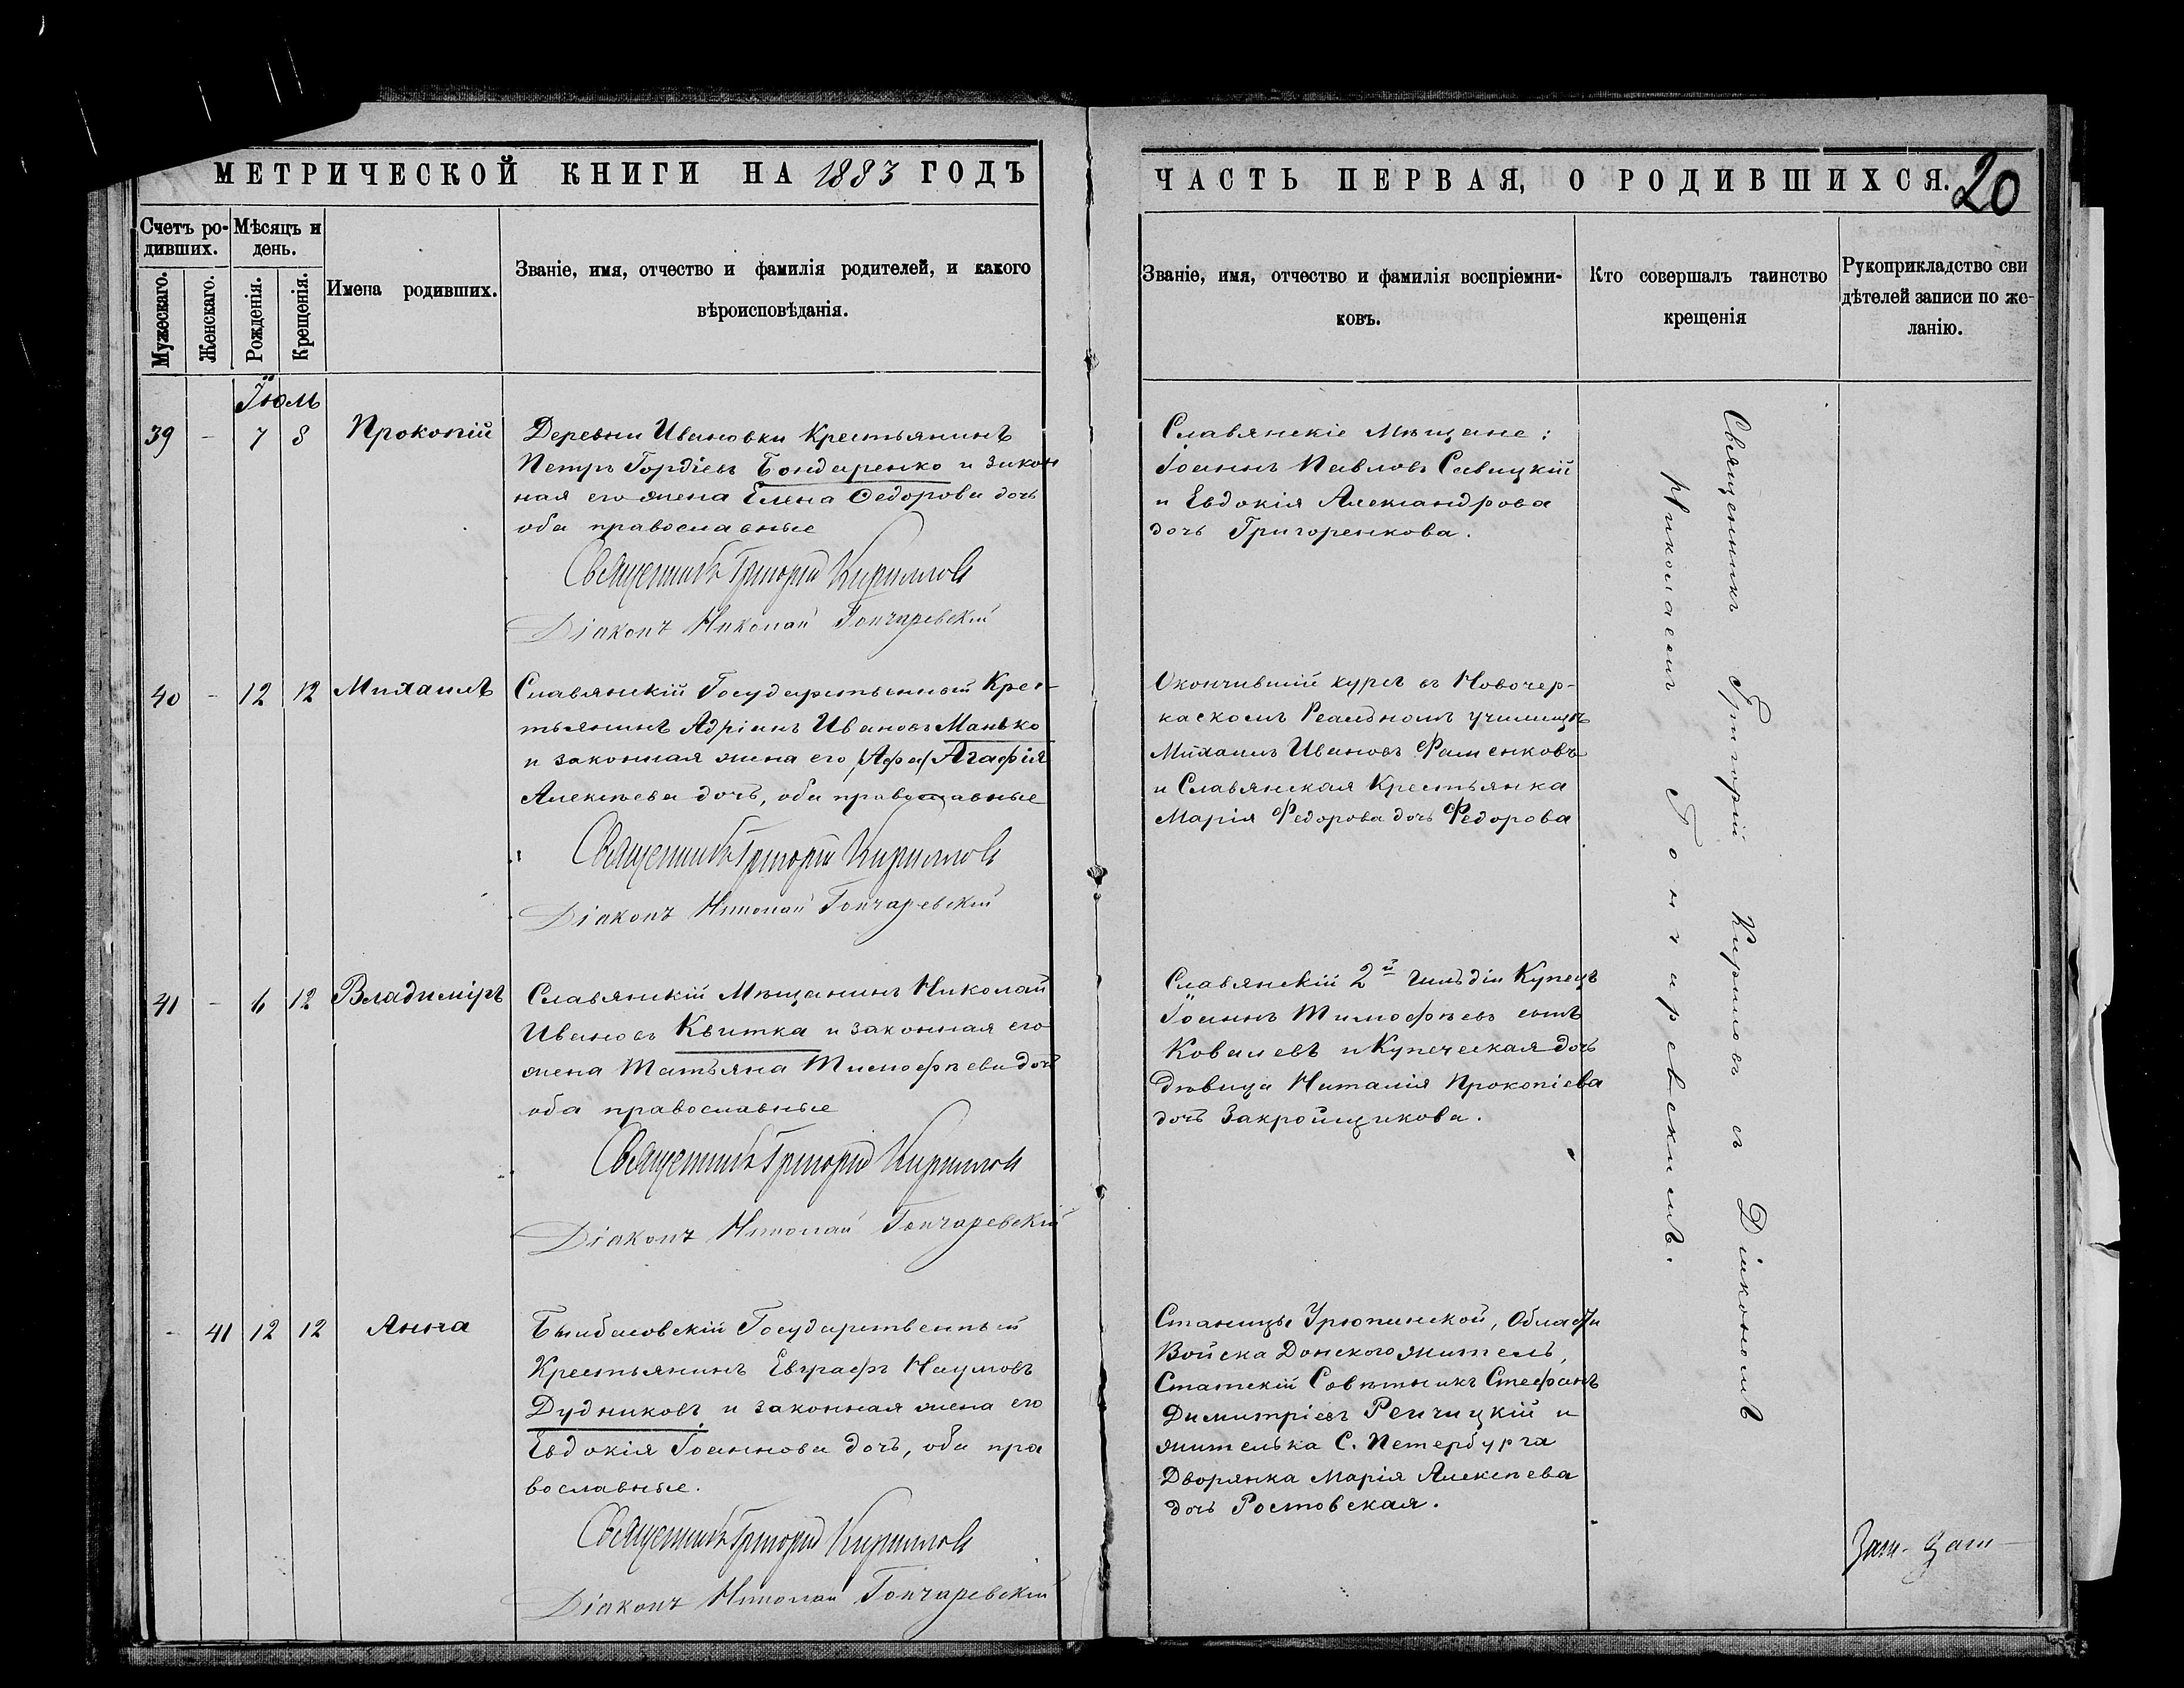 МЕТРИЧЕСКОЙ КНИГИ НА 1883 ГОДЪ
Счетъ ро-
дившихъ.
Мѣсяцъ и
день.
Мужескаго.
Женскаго.
Рожденія.
Крещенія.
Имена родивших.
Званіе, имя, отчество и фамилія родителей, и какого
вѣроисповѣданія.
Іюль
39 - 7 8 Прокопій
Деревни Ивановки Крестьянинъ
Петръ Гордіевъ Бондаренко и закон
ная его жена Елена Ѳедорова дочь
оба православные
Священникъ Григорій Кирилловъ
Діаконъ Николай Гончаревскій
40 - 12 12 Михаилъ
Славянскій Государственный Крес-
тьянинъ Адріанъ Ивановъ Манько
и законная жена его (Афа) Агафія
Алексѣева дочь, оба православные
Священникъ Григорій Кирилловъ
Діаконъ Николай Гончаревскій
41 - 6 12 Владиміръ
Славянскій Мѣщанинъ Николай
Ивановъ Квитка и законная его
жена Татьяна Тимофѣева дочь
оба православные
Священникъ Григорій Кирилловъ
Діаконъ Николай Гончаревскій
- 41 12 12 Анна
Государственный
Крестьянинъ Евграфъ Наумовъ
Дудниковъ и законная жена его
Евдокія Іоаннова дочь, оба пра
вославные.
Священникъ Григорій Кирилловъ
Діаконъ Николай Гончаревскій
ЧАСТЬ ПЕРВАЯ, О РОДИВШИХСЯ.
20
Званіе, имя, отчество и фамилія воспріемни-
ковъ.
Кто совершалъ таинство
крещенія
Рукоприкладство сви
дѣтелей записи по же-
ланію.
Славянскіе Мѣщане:
Іоаннъ Павловъ Савицкій
и Евдокія Александрова
дочь Григоренкова.
Окончившій курсъ въ Новочер-
каскомъ Реальномъ училищѣ
Михаилъ Ивановъ Фаменковъ
и Славянская Крестьянка
Марія Федорова дочь Федорова
Славянскій 2й гильдіи Купецъ
Іоаннъ Тимофѣевъ сынъ
Ковалевъ и Купеческая дочь
дѣвица Наталія Прокопіева
дочь Закройщикова.
Станицы Урюпинской, Области
Войска Донского житель,
Статскій Совѣтникъ Стефанъ
Димитріевъ Речицкій и
жителька С. Петербурга
Дворянка Марія Алексѣева
дочь Ростовская.
Священникъ Григорій Кириловъ съ Діакономъ
Николаемъ Гончаревскимъ.